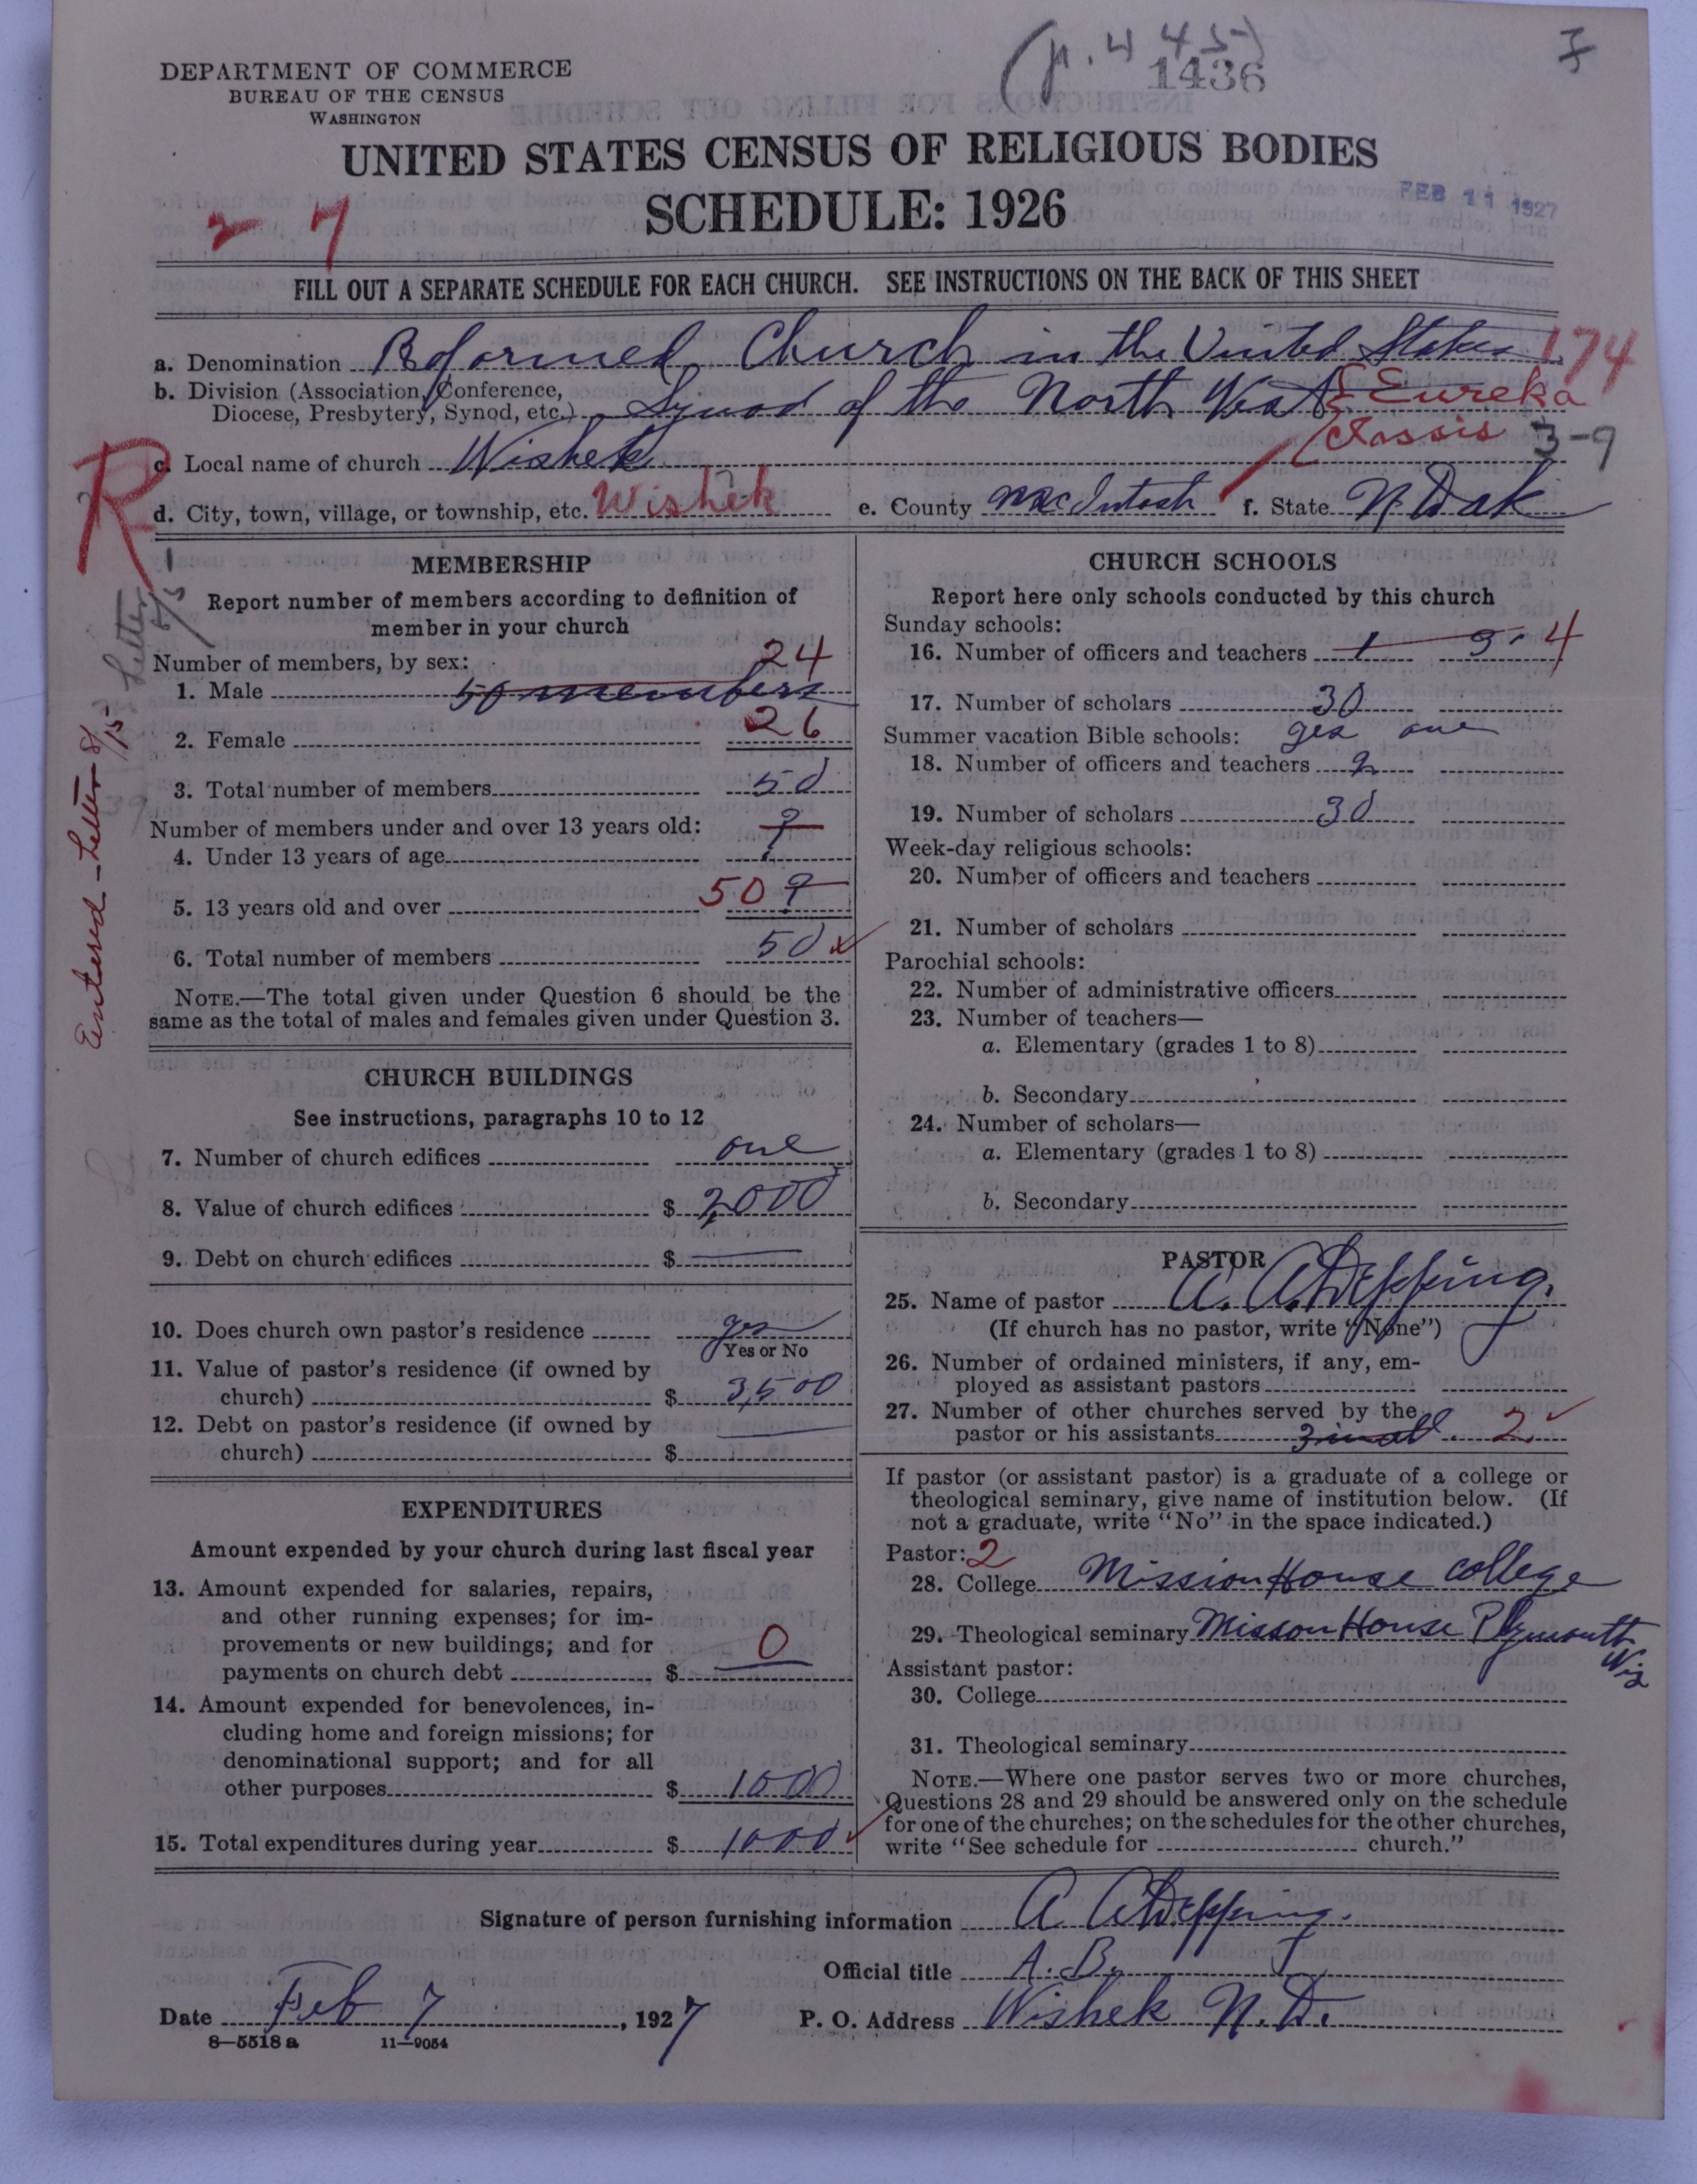 (p. 445)
1436
DEPARTMENT OF COMMERCE
BUREAU OF THE CENSUS
WASHINGTON
UNITED STATES CENSUS OF RELIGIOUS BODIES
SCHEDULE: 1926
FEB 11 1927
2 7
FILL OUT A SEPARATE SCHEDULE FOR EACH CHURCH. SEE INSTRUCTIONS ON THE BACK OF THIS SHEET
a. Denomination Reformed Church in the United States 174
b. Division (Association, Conference,
Diocese, Presbytery, Synod, etc.) Synod of the North West Eureka
Classis 3-9
c. Local name of church Wishek
R
d. City, town, village, or township, etc. Wishek e. County MacIntosh f. State N. Dak
Entered - Letter 8/15
Letter
MEMBERSHIP
Report number of members according to definition of
member in your church
Number of members, by sex: 24
1. Male 50 members
2. Female 26
3. Total number of members 50
Number of members under and over 13 years old: ?
4. Under 13 years of age
5. 13 years old and over 50 ?
6. Total number of members 50
NOTE.—The total given under Question 6 should be the
same as the total of males and females given under Question 3.
CHURCH BUILDINGS
See instructions, paragraphs 10 to 12
7. Number of church edifices one
8. Value of church edifices $ 2000
9. Debt on church edifices $ —
10. Does church own pastor's residence yes
Yes or No
11. Value of pastor's residence (if owned by
church) $ 3500
12. Debt on pastor's residence (if owned by
church) $ —
EXPENDITURES
Amount expended by your church during last fiscal year
13. Amount expended for salaries, repairs,
and other running expenses; for im-
provements or new buildings; and for
payments on church debt $ 0
14. Amount expended for benevolences, in-
cluding home and foreign missions; for
denominational support; and for all
other purposes $ 1000
15. Total expenditures during year $ 1000
CHURCH SCHOOLS
Report here only schools conducted by this church
Sunday schools:
16. Number of officers and teachers 1 3 - 4
17. Number of scholars 30
Summer vacation Bible schools: yes one
18. Number of officers and teachers 2
19. Number of scholars 30
Week-day religious schools:
20. Number of officers and teachers
21. Number of scholars
Parochial schools:
22. Number of administrative officers
23. Number of teachers—
a. Elementary (grades 1 to 8)
b. Secondary
24. Number of scholars—
a. Elementary (grades 1 to 8)
b. Secondary
PASTOR
25. Name of pastor A. A. Depping.
(If church has no pastor, write "None")
26. Number of ordained ministers, if any, em-
ployed as assistant pastors
27. Number of other churches served by the
pastor or his assistants 3 in all. 2
If pastor (or assistant pastor) is a graduate of a college or
theological seminary, give name of institution below. (If
not a graduate, write "No" in the space indicated.)
Pastor: 2
28. College Mission House college
29. Theological seminary Misson House Plymouth
Wis
Assistant pastor:
30. College
31. Theological seminary
NOTE.—Where one pastor serves two or more churches,
Questions 28 and 29 should be answered only on the schedule
for one of the churches; on the schedules for the other churches,
write "See schedule for church."
Signature of person furnishing information A. A. Depping.
Official title A. B.
Date Feb 7, 1927 P. O. Address Wishek N. D.
8—5518 a 11—9054